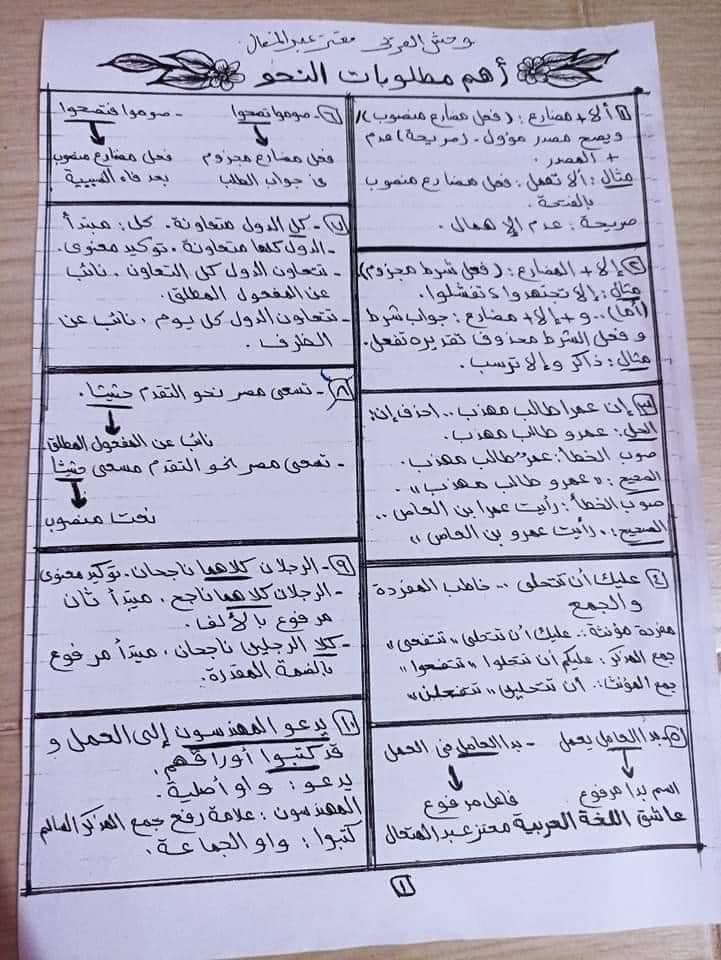 وحش العربي معتز عبد المتعال
أهم مطلوبات النحو
١- ألا + مضارع : (فعل مضارع منصوب)
ويصح مصدر مؤول . (صريحة) عدم
+ المصدر .
مثال : ألا تهمل : فعل مضارع منصوب
بالفتحة .
صريحة : عدم الإهمال .
٢- إلا + المضارع : (فعل شرط مجزوم)
مثال : إلا تجتهدوا تفشلوا .
(أما) .. و + إلا + مضارع : جواب شرط
وفعل الشرط محذوف تقديره تفعل .
مثال : ذاكر وإلا ترسب .
٣- إن عمرا طالب مهذب .. احذف إن :
الحل : عمرو طالب مهذب .
صوب الخطأ : عمر طالب مهذب .
الصحيح : " عمرو طالب مهذب " .
صوب الخطأ : رأيت عمرا ابن العاص ..
الصحيح : . رأيت عمرو بن العاص "
٤- عليك أن تتحلى .. خاطب المفردة
والجمع
مفردة مؤنثة : عليك أن تتحلي " تنتفعي "
جمع المذكر : عليكم أن تتحلوا " تنتفعوا "
جمع المؤنث : أن تتحلين " تنتفعلن "
٥- بدأ العامل يعمل - بدأ العامل في العمل
اسم بدا مرفوع فاعل مرفوع
عاشق اللغة العربية معتز عبد المتعال
٦- صوموا تصحوا - صوموا فتصحوا
فعل مضارع مجزوم فعل مضارع منصوب
في جواب الطلب بعد فاء السببية
٧- كل الدول متعاونة . كل : مبتدأ
- الدول كلها متعاونة . توكيد معنوى .
- تتعاون الدول كل التعاون . نائب
عن المفعول المطلق .
- تتعاون الدول كل يوم . نائب عن
الظرف .
٨- تسعى مصر نحو التقدم حثيثا .
نائب عن المفعول المطلق
- تسعى مصر نحو التقدم مسعى حثيثا
نعت منصوب
٩- الرجلان كلاهما ناجحان . توكيد معنوى
- الرجلان كلاهما ناجح . مبتدأ ثان
مرفوع بالألف .
- كلا الرجلين ناجحان . مبتدأ مرفوع
بالضمة المقدرة .
١٠- يدعو المهندسون إلى العمل و
قد كتبوا أوراقهم .
يدعو : واو أصلية .
المهندسون : علامة رفع جمع المذكر السالم
كتبوا : واو الجماعة .
١